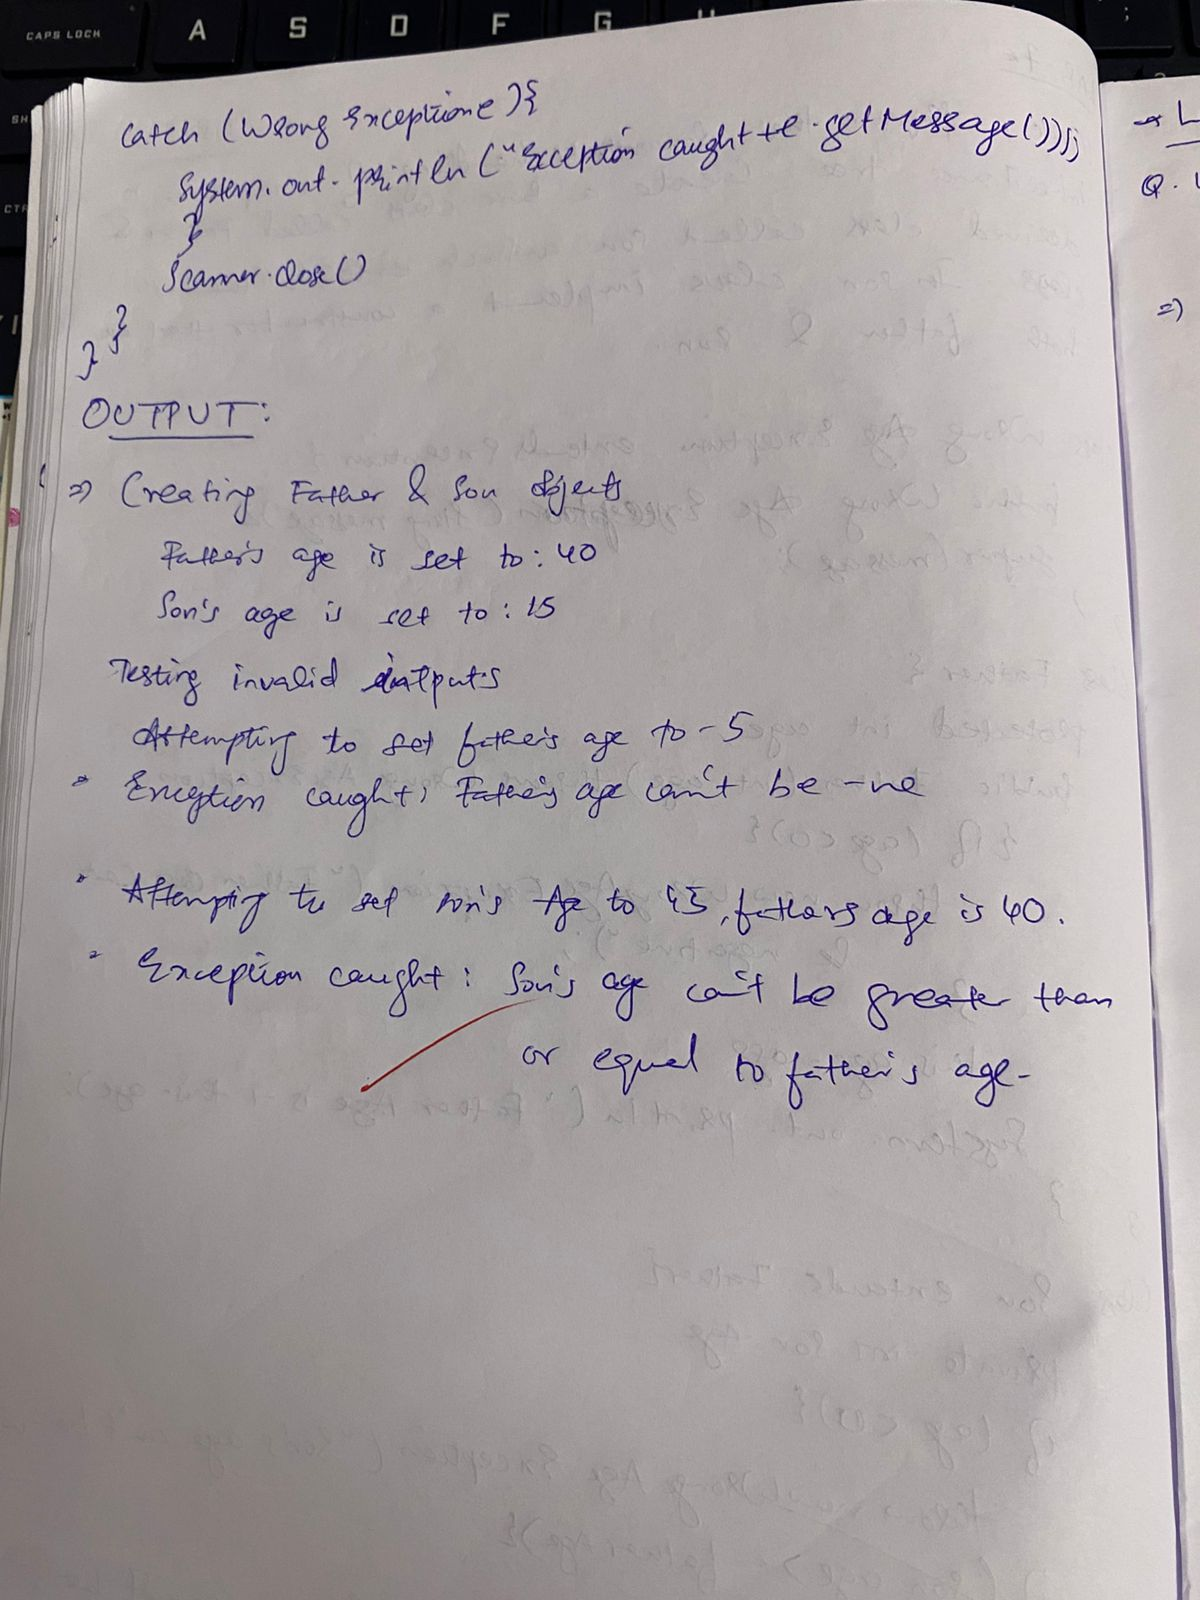 CAPS LOCK
A S D F G
catch (Wrong Exceptione){
System.out.println("Exception caught +e.getMessage());
}
Scanner.close()
}
}
OUTPUT:
=> Creating Father & Son Objects
Father's age is set to: 40
Son's age is set to: 15
Testing invalid
Attempting to set father's age to -5
Exception caught: Father's age can't be -ve
Attempting to set son's Age to 45, fathers age is 40.
Exception caught: Son's age can't be greater than
or equal to father's age.
Q.
=>